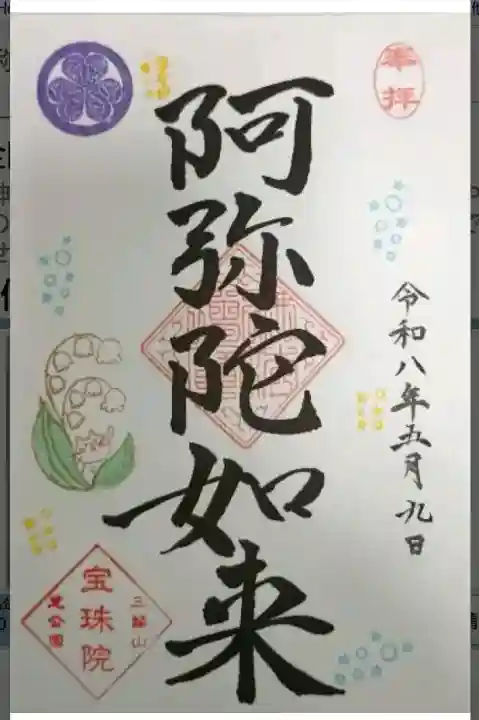 奉拝
令和八年五月九日
阿弥陀如来
三縁山
宝珠院
芝公園